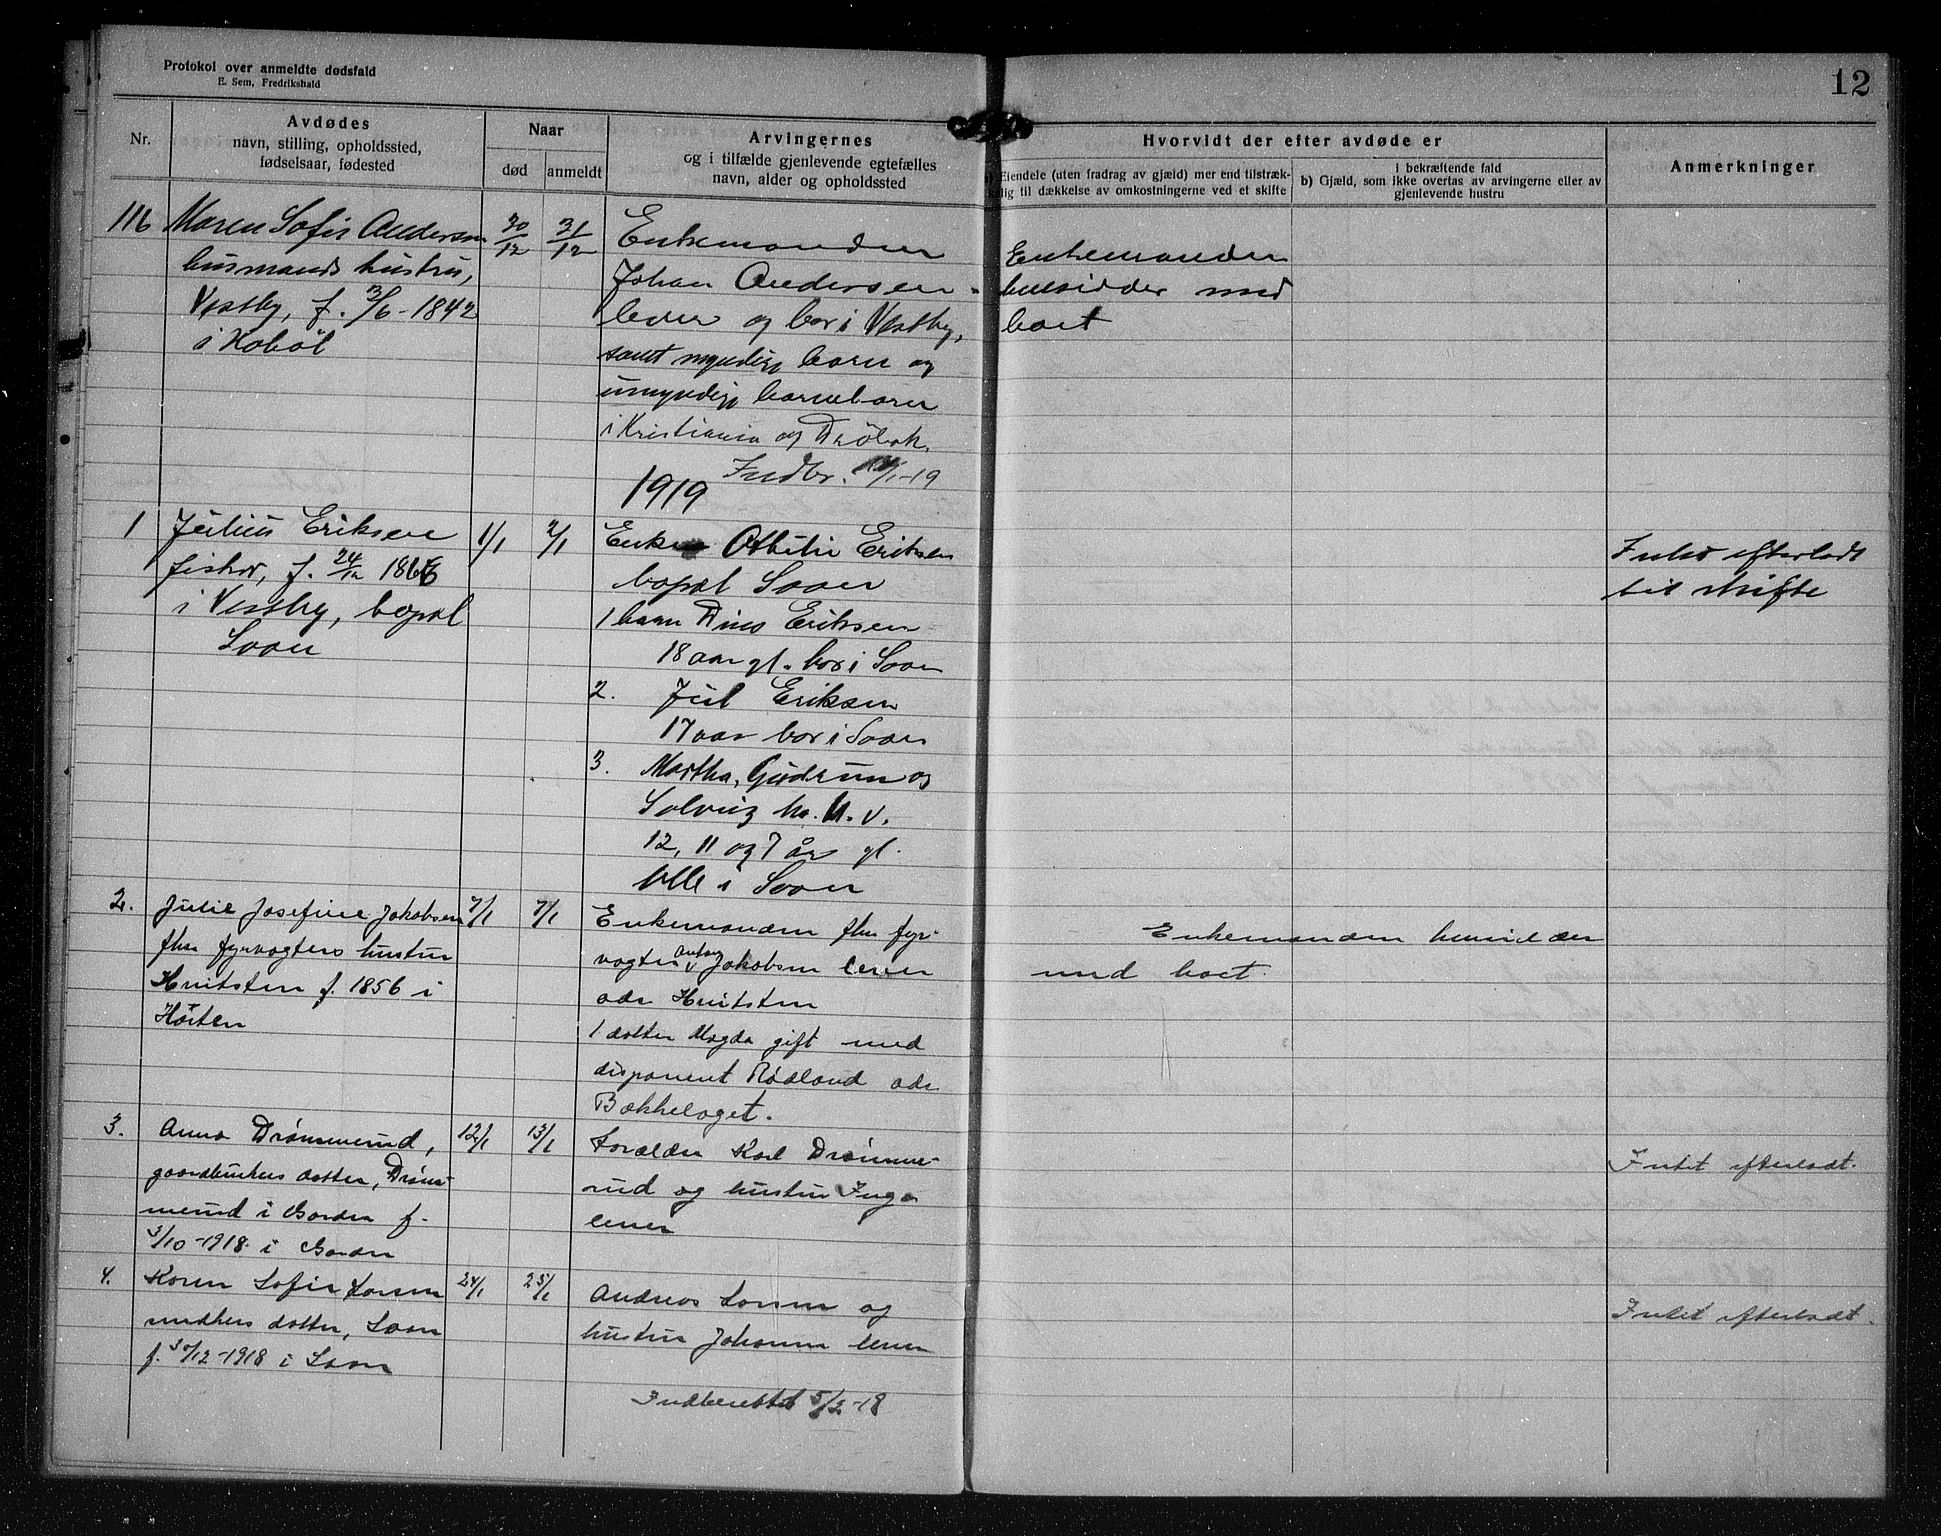 Protokol over anmeldte dødsfald
E. Sem, Fredrikshald
12
Nr.
Avdødes
navn, stilling, opholdssted,
fødselsaar, fødested
Naar
død
anmeldt
Arvingernes
og i tilfælde gjenlevende egtefælles
navn, alder og opholdssted
Hvorvidt der efter avdøde er
Eiendele (uten fradrag av gjæld) mer end tilstræk-
lig til dækkelse av omkostningerne ved et skifte
i bekræftende fald
b) Gjæld, som ikke overtas av arvingerne eller av
gjenlevende hustru
Anmerkninger
116
Maren Sofie Andersen
husmands hustru,
Vestby, f. 2/6 - 1842
i Hobøl
30/12
31/12
Enkemanden
Johan Andersen
lever og bor i Vestby,
samt myndige barn og
umyndige barnebarn
i Kristiania og Drøbak.
Indbr. /1-19
Enkemanden
hensidder med
boet
1919
1
Julius Eriksen
fisker, f. 24/12 186
i Vestby, bopæl
Soon
1/1
2/1
Enke Othilie Eriksen
bopæl Soon
1 barn Dines Eriksen
18 aar gl. bor i Soon
2. Jul Eriksen
17 aar bor i Soon
3. Martha, Gudrun og
Solveig h. h. v.
12, 11 og 7 år gl.
Alle i Soon
Intet efterladt
til skifte
2.
Julie Josefine Jakobsen
fhv fyrvogters hustru
Hvitsten f. 1856 i
Horten
7/1
7/1
Enkemanden fhv fyr-
vogter Anton Jakobsen lever
adr Hvitsten
1 datter Magda gift med
disponent Rødland adr
Bækkelaget.
Enkemanden hensidder
med boet.
3.
Anna Drømmerud,
gaardbrukers datter, Drøm-
merud i Garder f.
3/10-1918 i Garder
12/1
13/1
Forældre Karl Drømme-
rud og hustru Inga
lever
Intet efterladt.
4.
Karen Sofie Larsen
datter, Soon
f. 30/12-1918 i Soon
24/1
25/1
Andreas Larsen og
hustru Johanne lever
Intet efterladt.
Indberettet 5/2-18